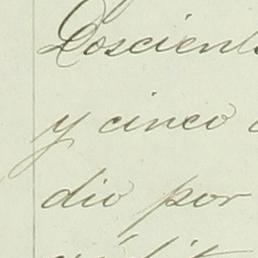 Doscient
y cinco
dio por